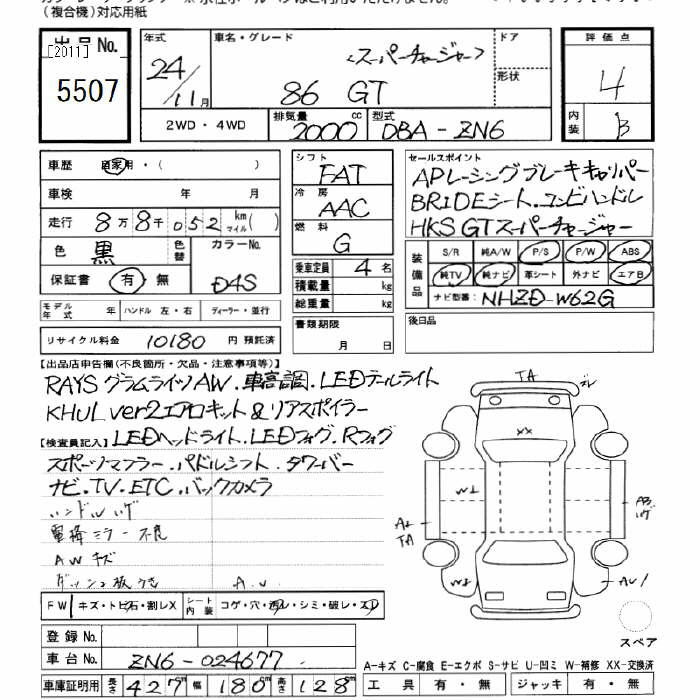 (複合機)対応用紙
出品No.
[2011]
5507
年式
24/11月
車名・グレード
<スーパーチャージャー>
86 GT
ドア
形状
評価点
4
内装
B
2WD・4WD
排気量
2000 cc
型式
DBA-ZN6
車歴 自家用・( )
車検 年 月
走行 8万8千052 km マイル( )
色 黒 色替
カラーNo. D4S
保証書 有・無
シフト
FAT
冷房
AAC
燃料
G
乗車定員 4 名
積載量 kg
総重量 kg
書類期限
月 日
セールスポイント
APレーシングブレーキキャリパー
BRIDEシート.コンビハンドル
HKS GTスーパーチャージャー
装備品
S/R 純A/W P/S P/W ABS
純TV 純ナビ 革シート 外ナビ エアB
ナビ型番: NHZD-W62G
後日品
モデル年式 年 ハンドル 左・右 ディーラー・並行
リサイクル料金 10180 円 預託済
【出品店申告欄(不良箇所・欠品・注意事項等)】
RAYS グラムライツAW.車高調.LEDテールライト
KHUL ver2エアロキット&リアスポイラー
【検査員記入】LEDヘッドライト.LEDフォグ.Rフォグ
スポーツマフラー.パドルシフト.タワーバー
ナビ.TV.ETC.バックカメラ
ハンドルハゲ
電格ミラー不良
AWキズ
TA
XX
W1
A2
TA
AB
ハゲ
W2
AU1
スペア
FW キズ・トビ石・割レX
シート内装 コゲ・穴・スレ・シミ・破レ・
登録No.
車台No. ZN6-024677
車庫証明用 長さ 427m 幅 180m 高さ 128m
A-キズ C-腐食 E-エクボ S-サビ U-凹ミ W-補修 XX-交換済
工具 有・無 ジャッキ 有・無